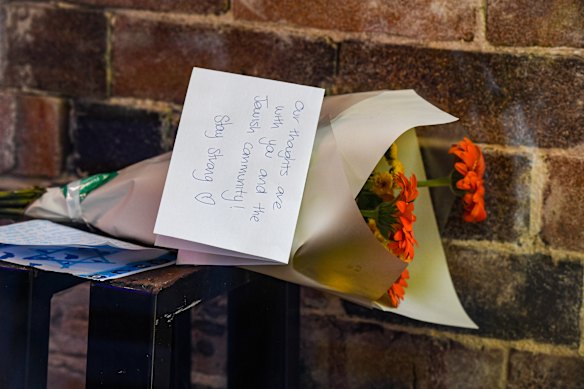 Our thoughts are
with you and the
Jewish community!
Stay strong ♡